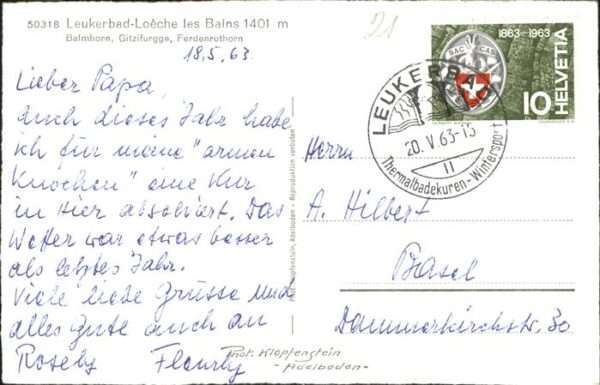 50318 Leukerbad-Loèche les Bains 1401 m
Balmhorn, Gitzifurgge, Ferdenrothorn
18.5.63
Lieber Papa,
Auch dieses Jahr habe
ich für meine "armen
Knochen" eine Kur
in hier absolviert. Das
Wetter war etwas besser
als letztes Jahr.
Viele liebe Grüsse und
alles Gute auch an
Roseby Fleurly
Phot. Klopfenstein, Adelboden - Reproduktion verboten
Phot. Klopfenstein
- Adelboden -
21
1863-1963
SAC CAS
HELVETIA
10
LEUKERBAD
20. V. 63-13
11
Thermalbadekuren - Wintersport
Herrn
A. Hilbert
Basel
Dammerkirchstr. 30